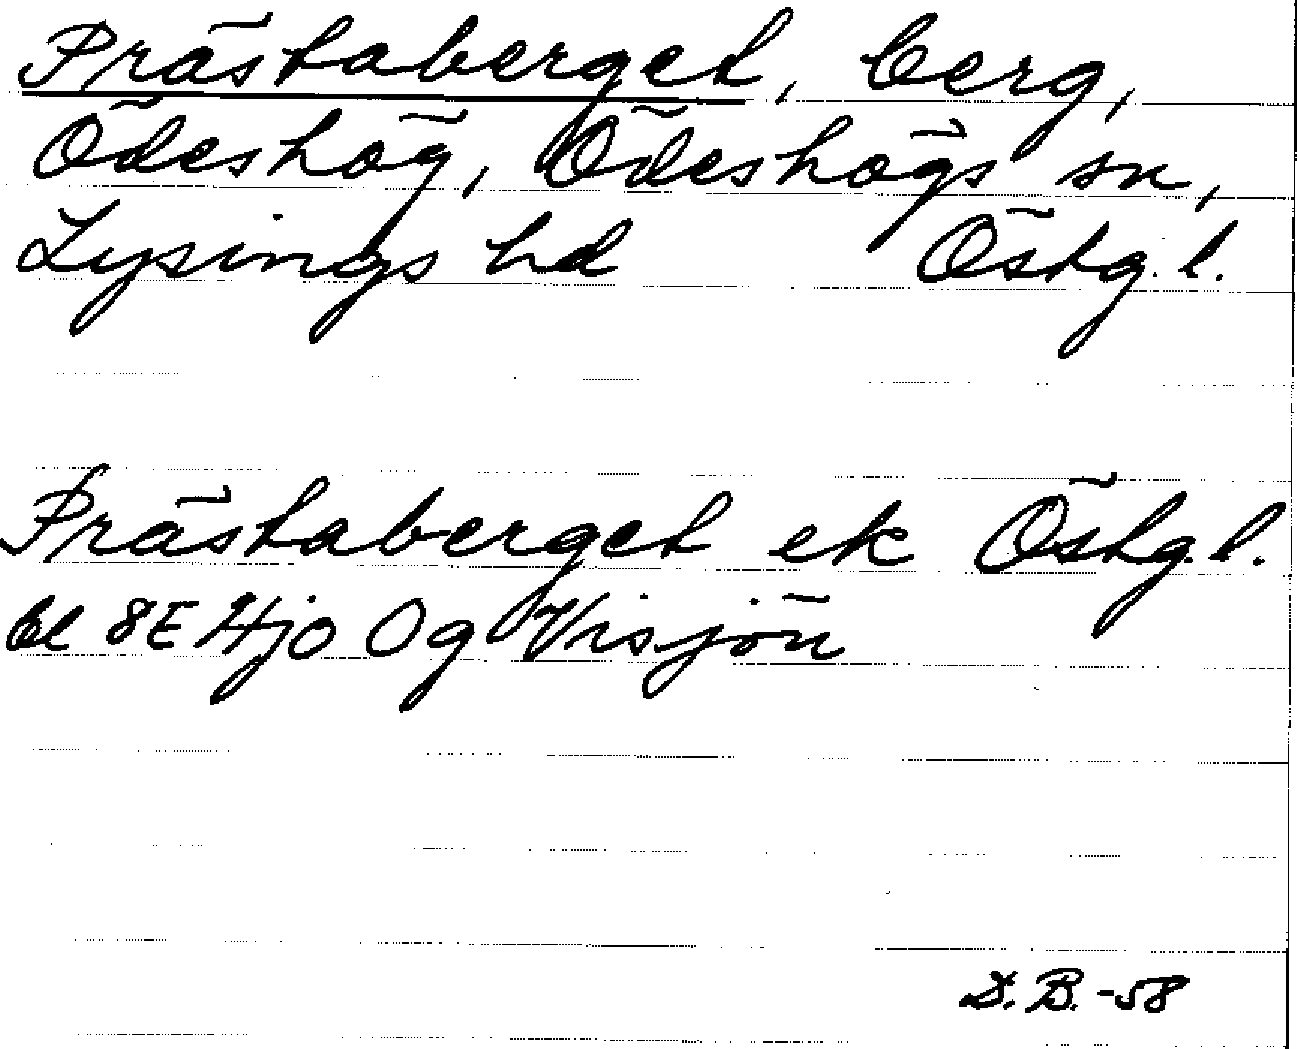 Prästaberget, berg,
Ödeshög, Ödeshögs sn,
Lysings hd Östg. l.
Prästaberget ek Östg. l.
bl 8E Hjo Og Visjön
D.B. -58